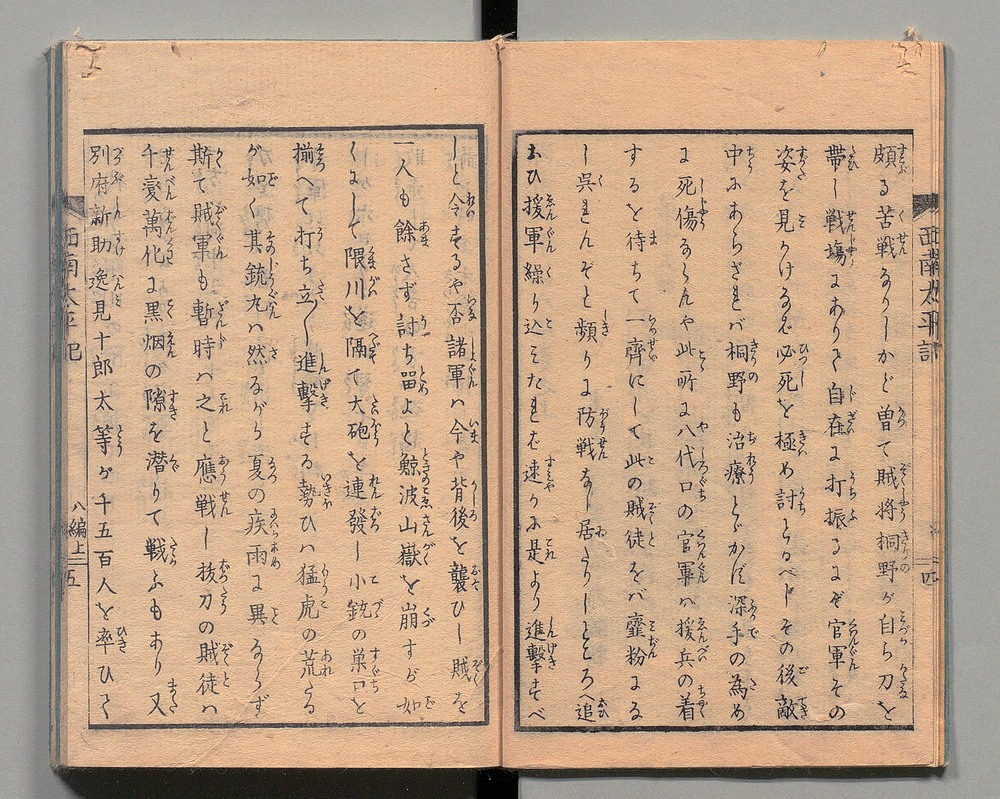 頗る苦戦なりしかど曽て賊将桐野が自ら刀を
帯し戦場にありて自在に打振るにぞ官軍その
姿を見かけるなど必死を極め討とるべしその後敵
中にあらざれバ桐野も治療とどかず深手の為め
に死傷ならんや此所に八代口の官軍ハ援兵の着
するを待ちて一齊にして此の賊徒をバ虀粉にな
し呉れんぞと頻りに防戦なし居たりしところへ追
おひ援軍繰り込みたれば速かに是より進撃すべ
しと令するや否諸軍ハ今や背後を襲ひし賊を
一人も餘さず討ち畄よと鯨波山嶽を崩すが如
くにして隈川を隔て大砲を連發し小銃の巣口を
揃へて打ち立〳〵進撃する勢ひハ猛虎の荒たる
が如く其銃丸ハ然ながら夏の疾雨に異ならず
斯て賊軍も暫時ハ之と應戦し抜刀の賊徒ハ
千変萬化に黒烟の隙を潜りて戦ふもあり又
別府新助逸見十郎太等が千五百人を率ひて
西南太平記
四
西南太平記
八編上
五